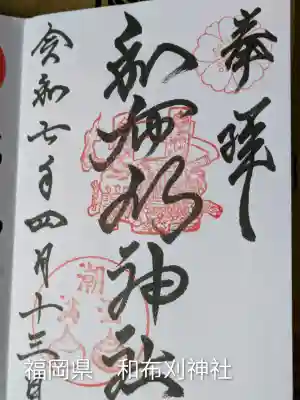 奉拝
和布刈神社
令和七年四月十三日
福岡県　和布刈神社